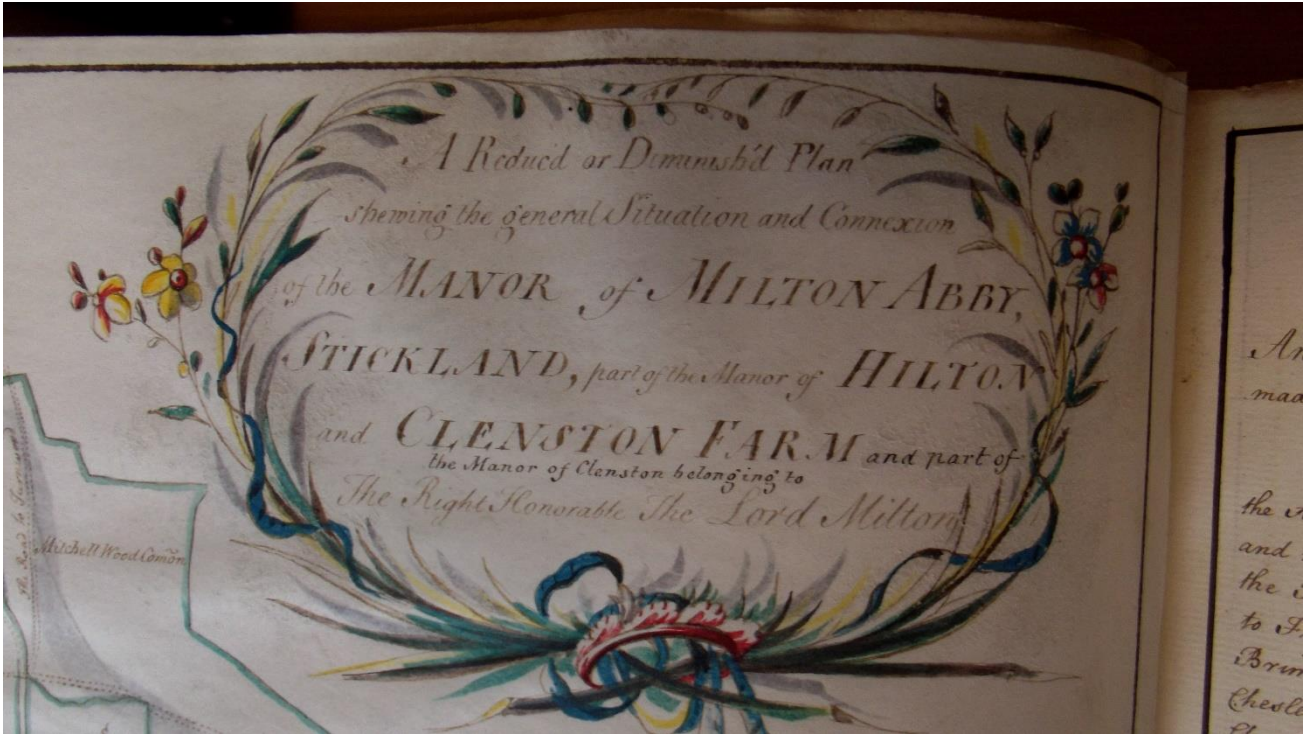 A Reduc'd or Diminish'd Plan
shewing the general Situation and Connexion
of the MANOR of MILTON ABBY,
STICKLAND, part of the Manor of HILTON
and CLENSTON FARM and part of
the Manor of Clenston belonging to
The Right Honorable The Lord Milton
Mitchell Wood Comõn
the Road to
made
the
and
the
to